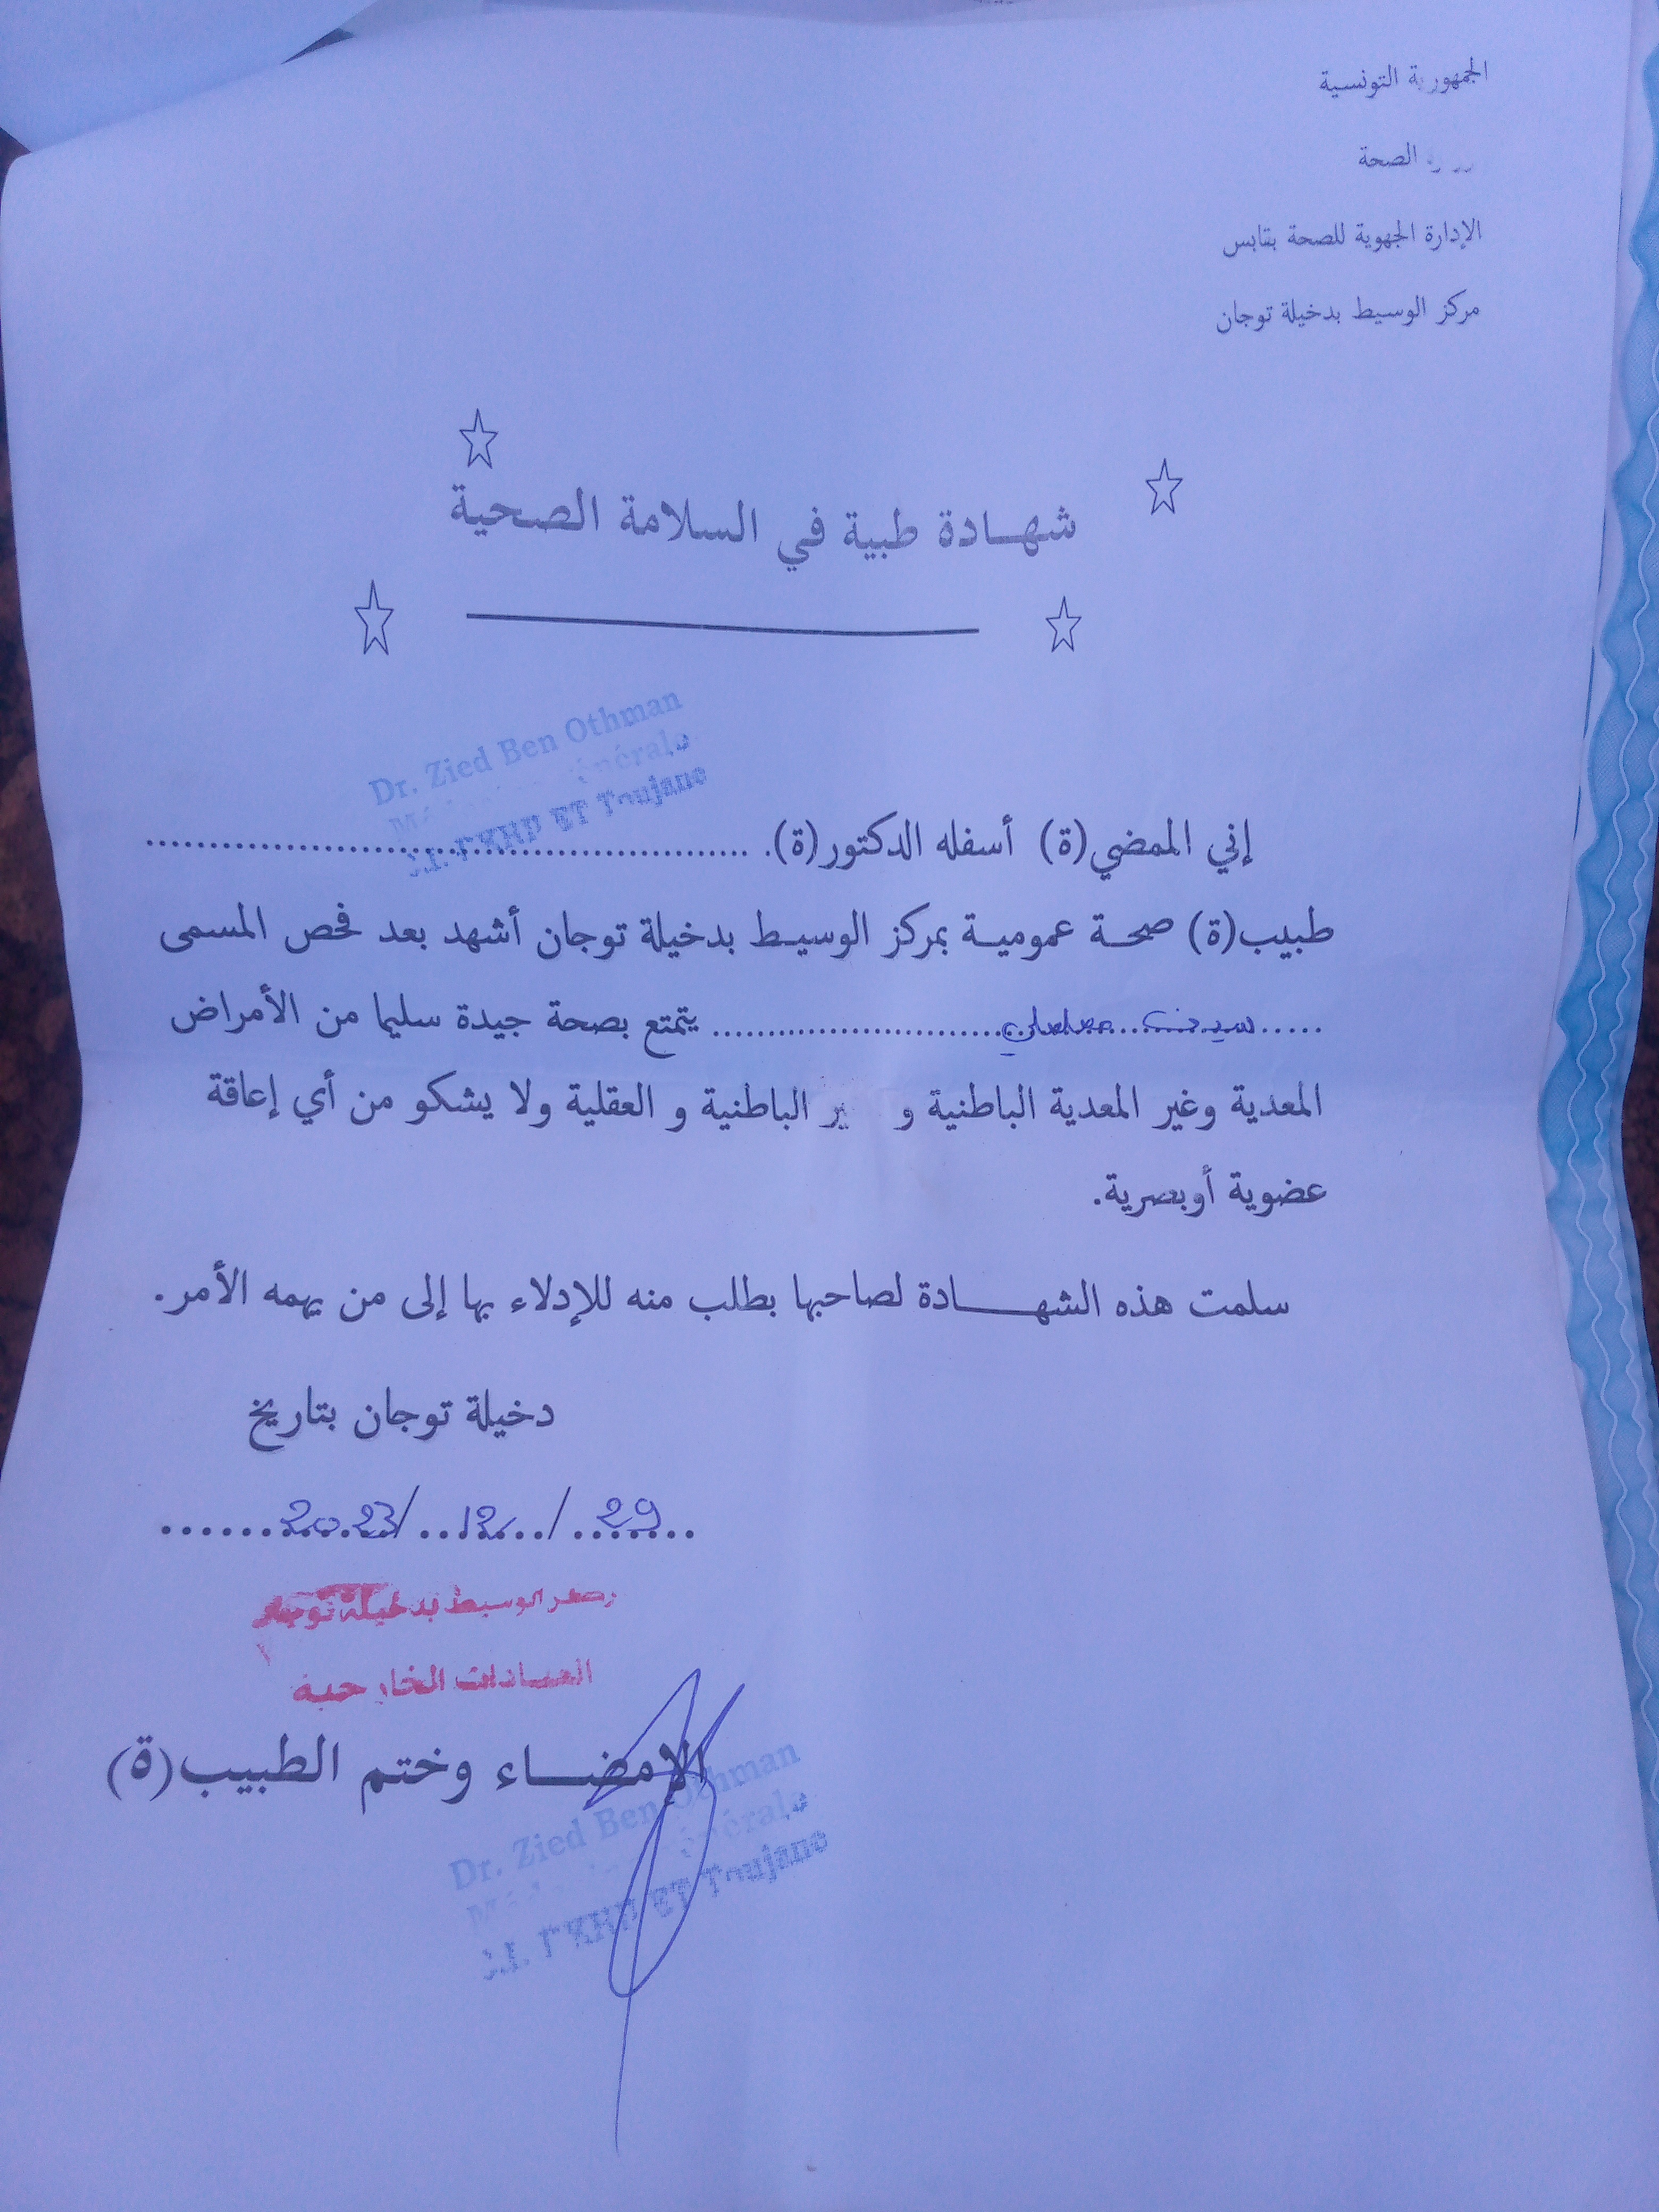 الجمهورية التونسية
الصحة
الإدارة الجهوية للصحة بقابس
مركز الوسيط بدخيلة توجان
شهادة طبية في السلامة الصحية
Dr. Zied Ben Othman
ET Toujane
إني الممضي(ة) أسفله الدكتور(ة).
طبيب(ة) صحة عمومية بمركز الوسيط بدخيلة توجان أشهد بعد فحص المسمى
يتمتع بصحة جيدة سليما من الأمراض
المعدية وغير المعدية الباطنية و الباطنية و العقلية ولا يشكو من أي إعاقة
عضوية أوبصرية.
سلمت هذه الشهادة لصاحبها بطلب منه للإدلاء بها إلى من يهمه الأمر.
دخيلة توجان بتاريخ
29/12/2023
الوسيط بدخيلة توجان
العيادات الخارجية
الإمضاء وختم الطبيب(ة)
Dr. Zied Ben Othman
ET Toujane